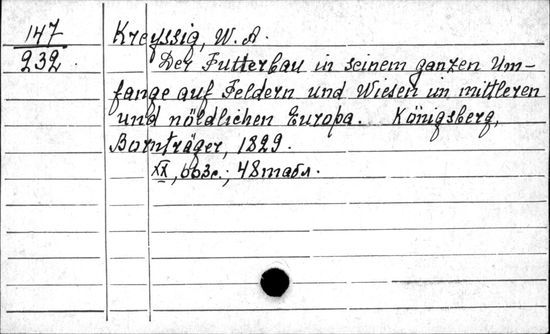 147
232.
Kreyssig, W. A.
Der Futterbau in seinem ganzen Um-
fange auf Feldern und Wiesen im mittleren
und nöldlichen Europa. Königsberg,
Bornträger, 1829.
XX, 663c.; 48 табл.